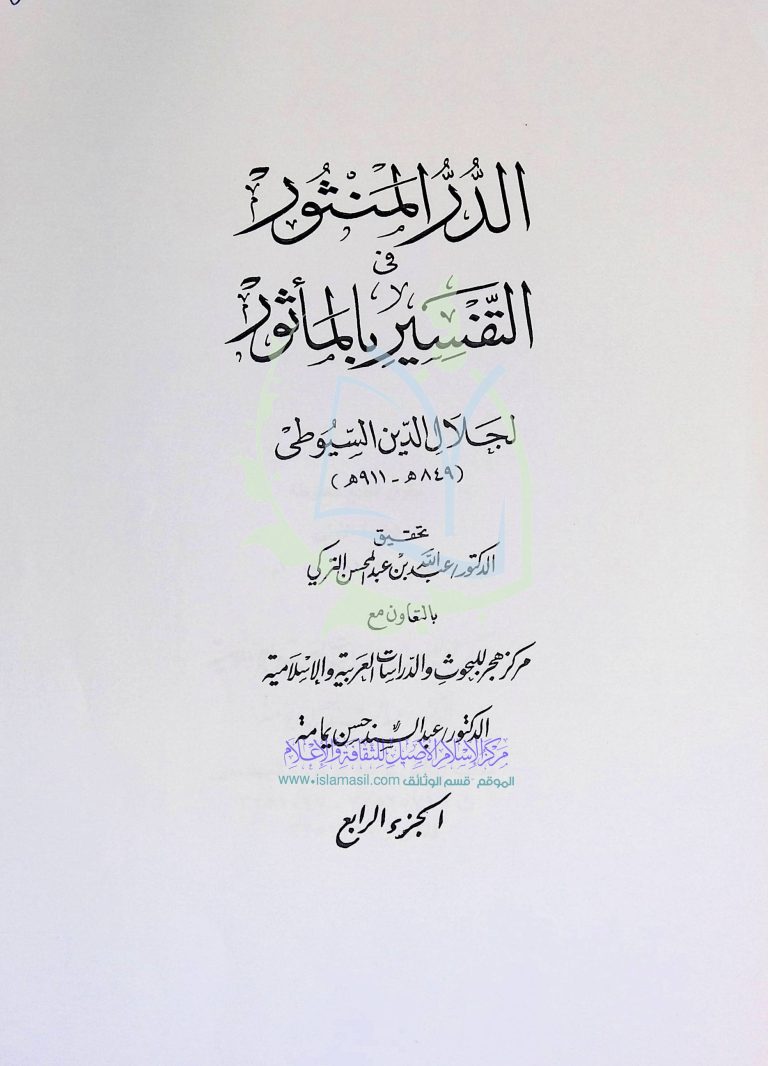 الدُّرُّ المَنْثُور
فى
التَّفْسِيرِ بِالمَأثور
لجَلَالِ الدّين السِّيُوطى
(٨٤٩هـ - ٩١١هـ)
تحقيق
الدكتور/عبد الله بن عبد المحسن التركي
بالتعاون مع
مركز هجر للبحوث والدراسات العربية والإسلامية
الدكتور/عبد السند حسن يمامة
مركز الإسلام الأصيل للثقافة والإعلام
الموقع - قسم الوثائق www.islamasil.com
الجزء الرابع